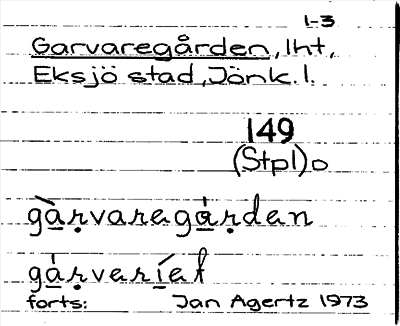 1-3
Garvaregården, lht,
Eksjö stad, Jönk. l.
149
(Stpl)o
gà̱ṛvaregȧ̱ṛden
gá̱ṛverí̱et
forts: Jan Agertz 1973